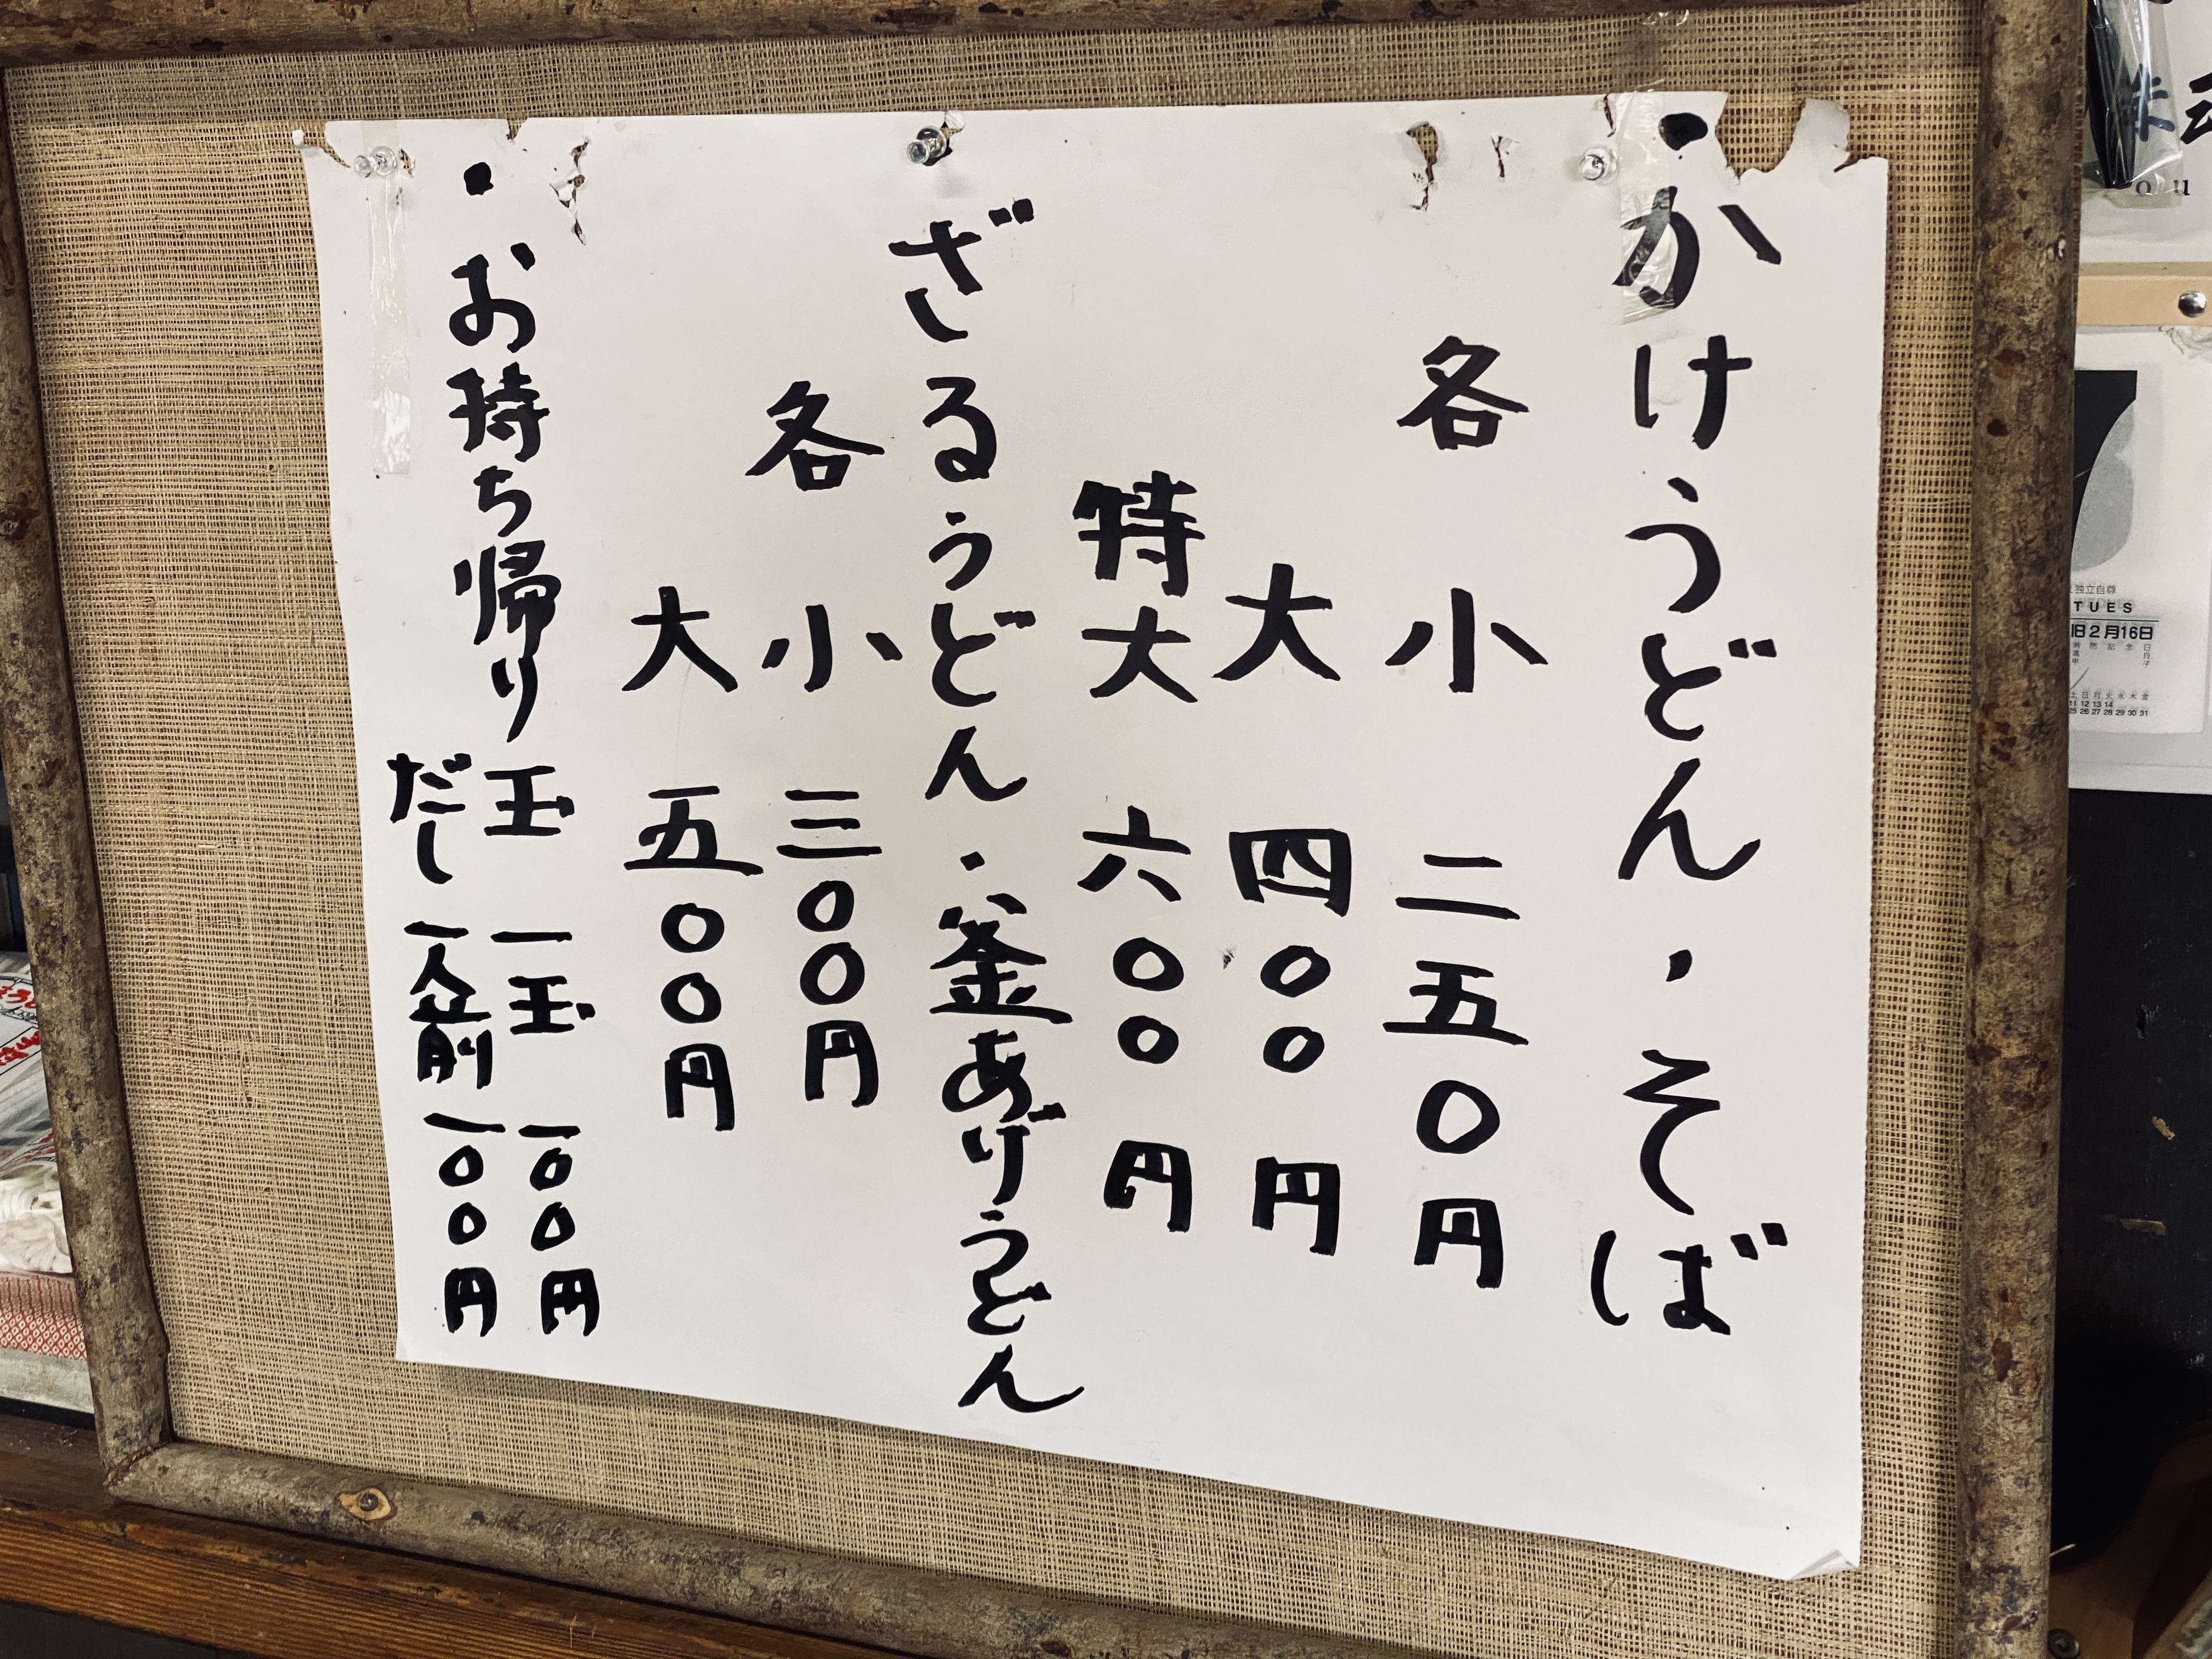 ・かけうどん・そば
各 小 二五〇円
大 四〇〇円
特大 六〇〇円
・ざるうどん・釜あげうどん
各 小 三〇〇円
大 五〇〇円
・お持ち帰り 玉 一玉 一〇〇円
だし 一人前 一〇〇円
o u
独立自尊
TUES
旧2月16日